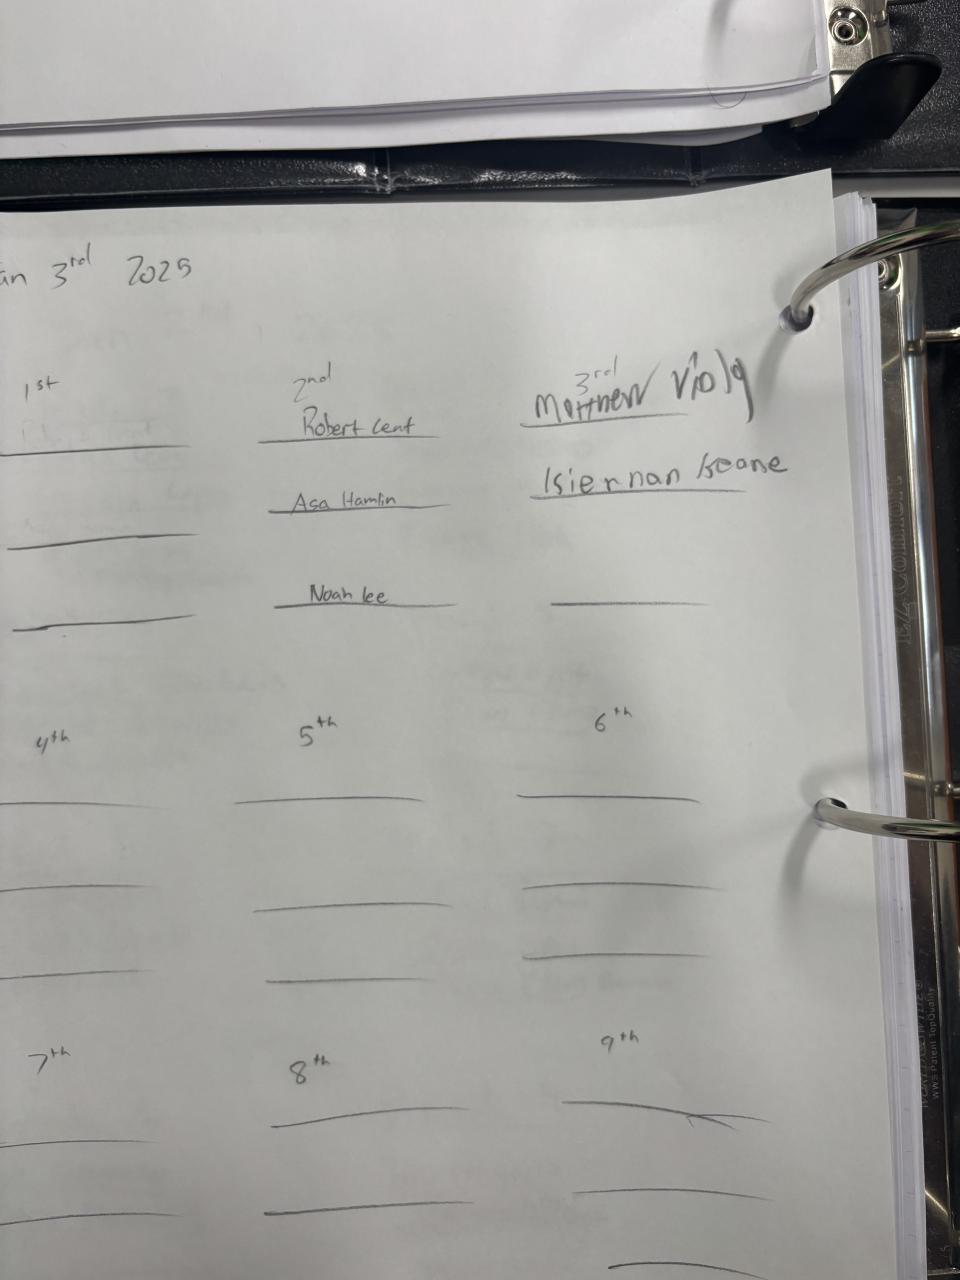 an 3rd 2025
1st 2nd 3rd
Robert Cent Matthew Viola
Asa Hamlin Kiernan Keane
Noah lee
4th 5th 6th
7th 8th 9th
WWS Patent TopQuality